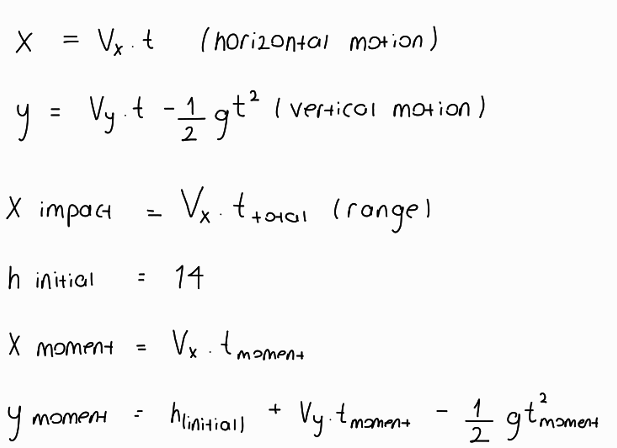 x = Vx . t (horizontal motion)
y = Vy . t - 1/2 gt² (vertical motion)
x impact = Vx . t total (range)
h initial = 14
x moment = Vx . t moment
y moment = h(initial) + Vy . t moment - 1/2 gt² moment